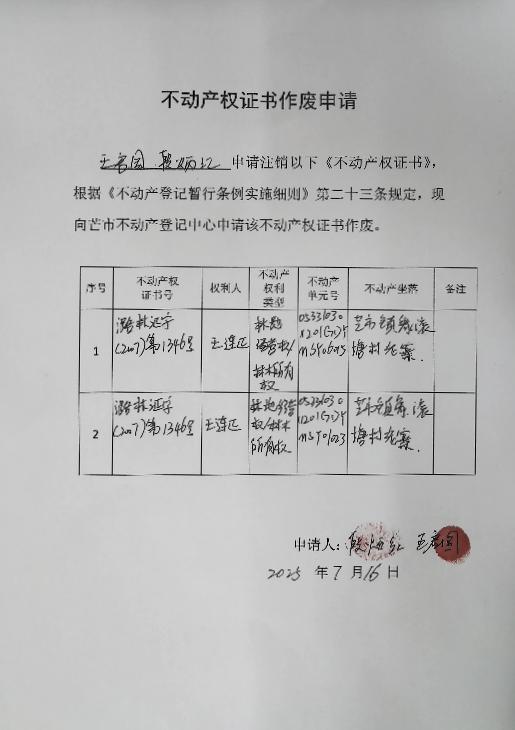 不动产权证书作废申请
王启国 申请注销以下《不动产权证书》，
根据《不动产登记暂行条例实施细则》第二十三条规定，现
向芒市不动产登记中心申请该不动产权证书作废。
序号 不动产权证书号 权利人 不动产权利类型 不动产单元号 不动产坐落 备注
1 潞林证字(2007)第1346号 王连正 林地经营权/林木所有权 芒市镇
2 潞林证字(2007)第1346号 王连正 林地经营权/林木所有权 芒市镇
申请人：
2025 年 7 月 16 日